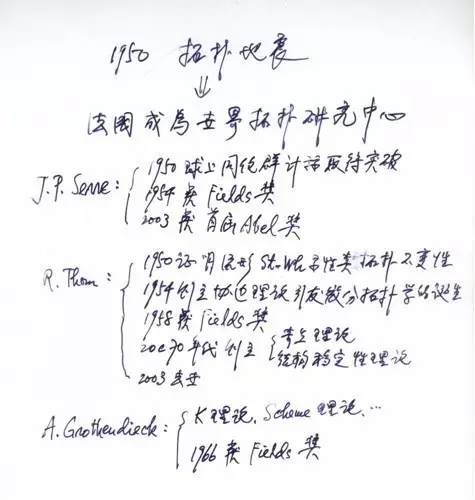 1950 拓扑地震
⇓
法国成為世界拓扑研究中心
J.P. Serre: 1950 球上同伦群计算取得突破
1954 获 Fields 奖
2003 获 首届 Abel 奖
R. Thom: 1950 证明流形 St-Wh 示性类拓扑不变性
1954 创立协边理论引发微分拓扑学的诞生
1958 获 Fields 奖
20C70年代创立 奇点理论
结构稳定性理论
2003 去世
A. Grothendieck: K理论、Scheme理论、…
1966 获 Fields 奖